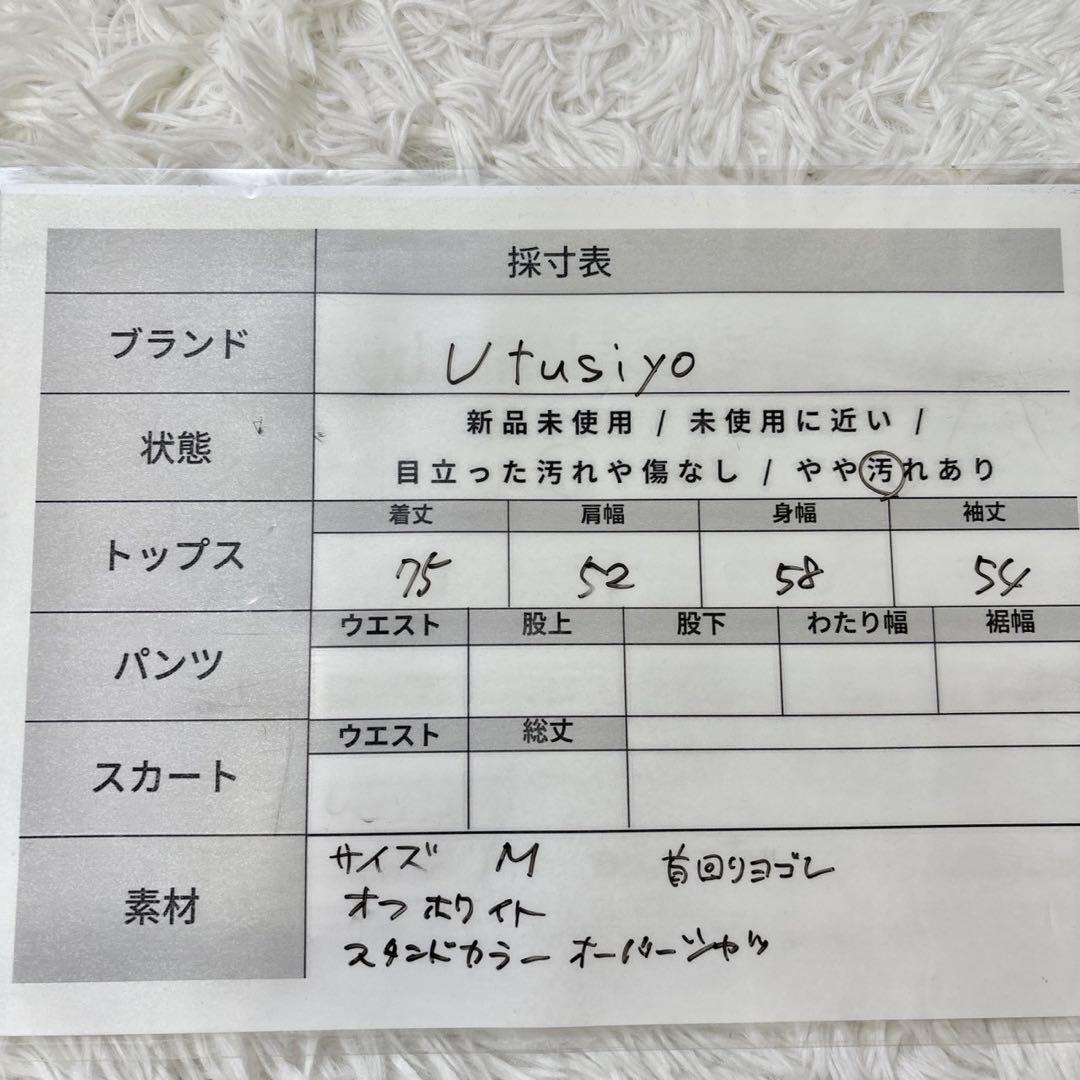 採寸表
ブランド Utusiyo
状態 新品未使用 / 未使用に近い /
目立った汚れや傷なし / やや汚れあり
トップス 着丈 肩幅 身幅 袖丈
75 52 58 54
パンツ ウエスト 股上 股下 わたり幅 裾幅
スカート ウエスト 総丈
素材 サイズ M 首回りヨゴレ
オフホワイト
スタンドカラーオーバーシャツ